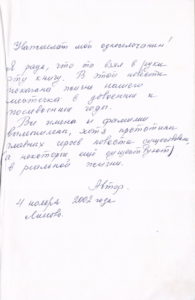 Уважаемый мой односельчанин!
Я рада, что ты взял в руки
эту книгу. В этой повести
показана жизнь нашего
местечка в довоенные и
послевоенные годы.
Все имена и фамилии
вымышлены, хотя прототипы
главных героев повести существовали,
а некоторые ещё существуют
в реальной жизни.
Автор.
4 ноября 2002 года